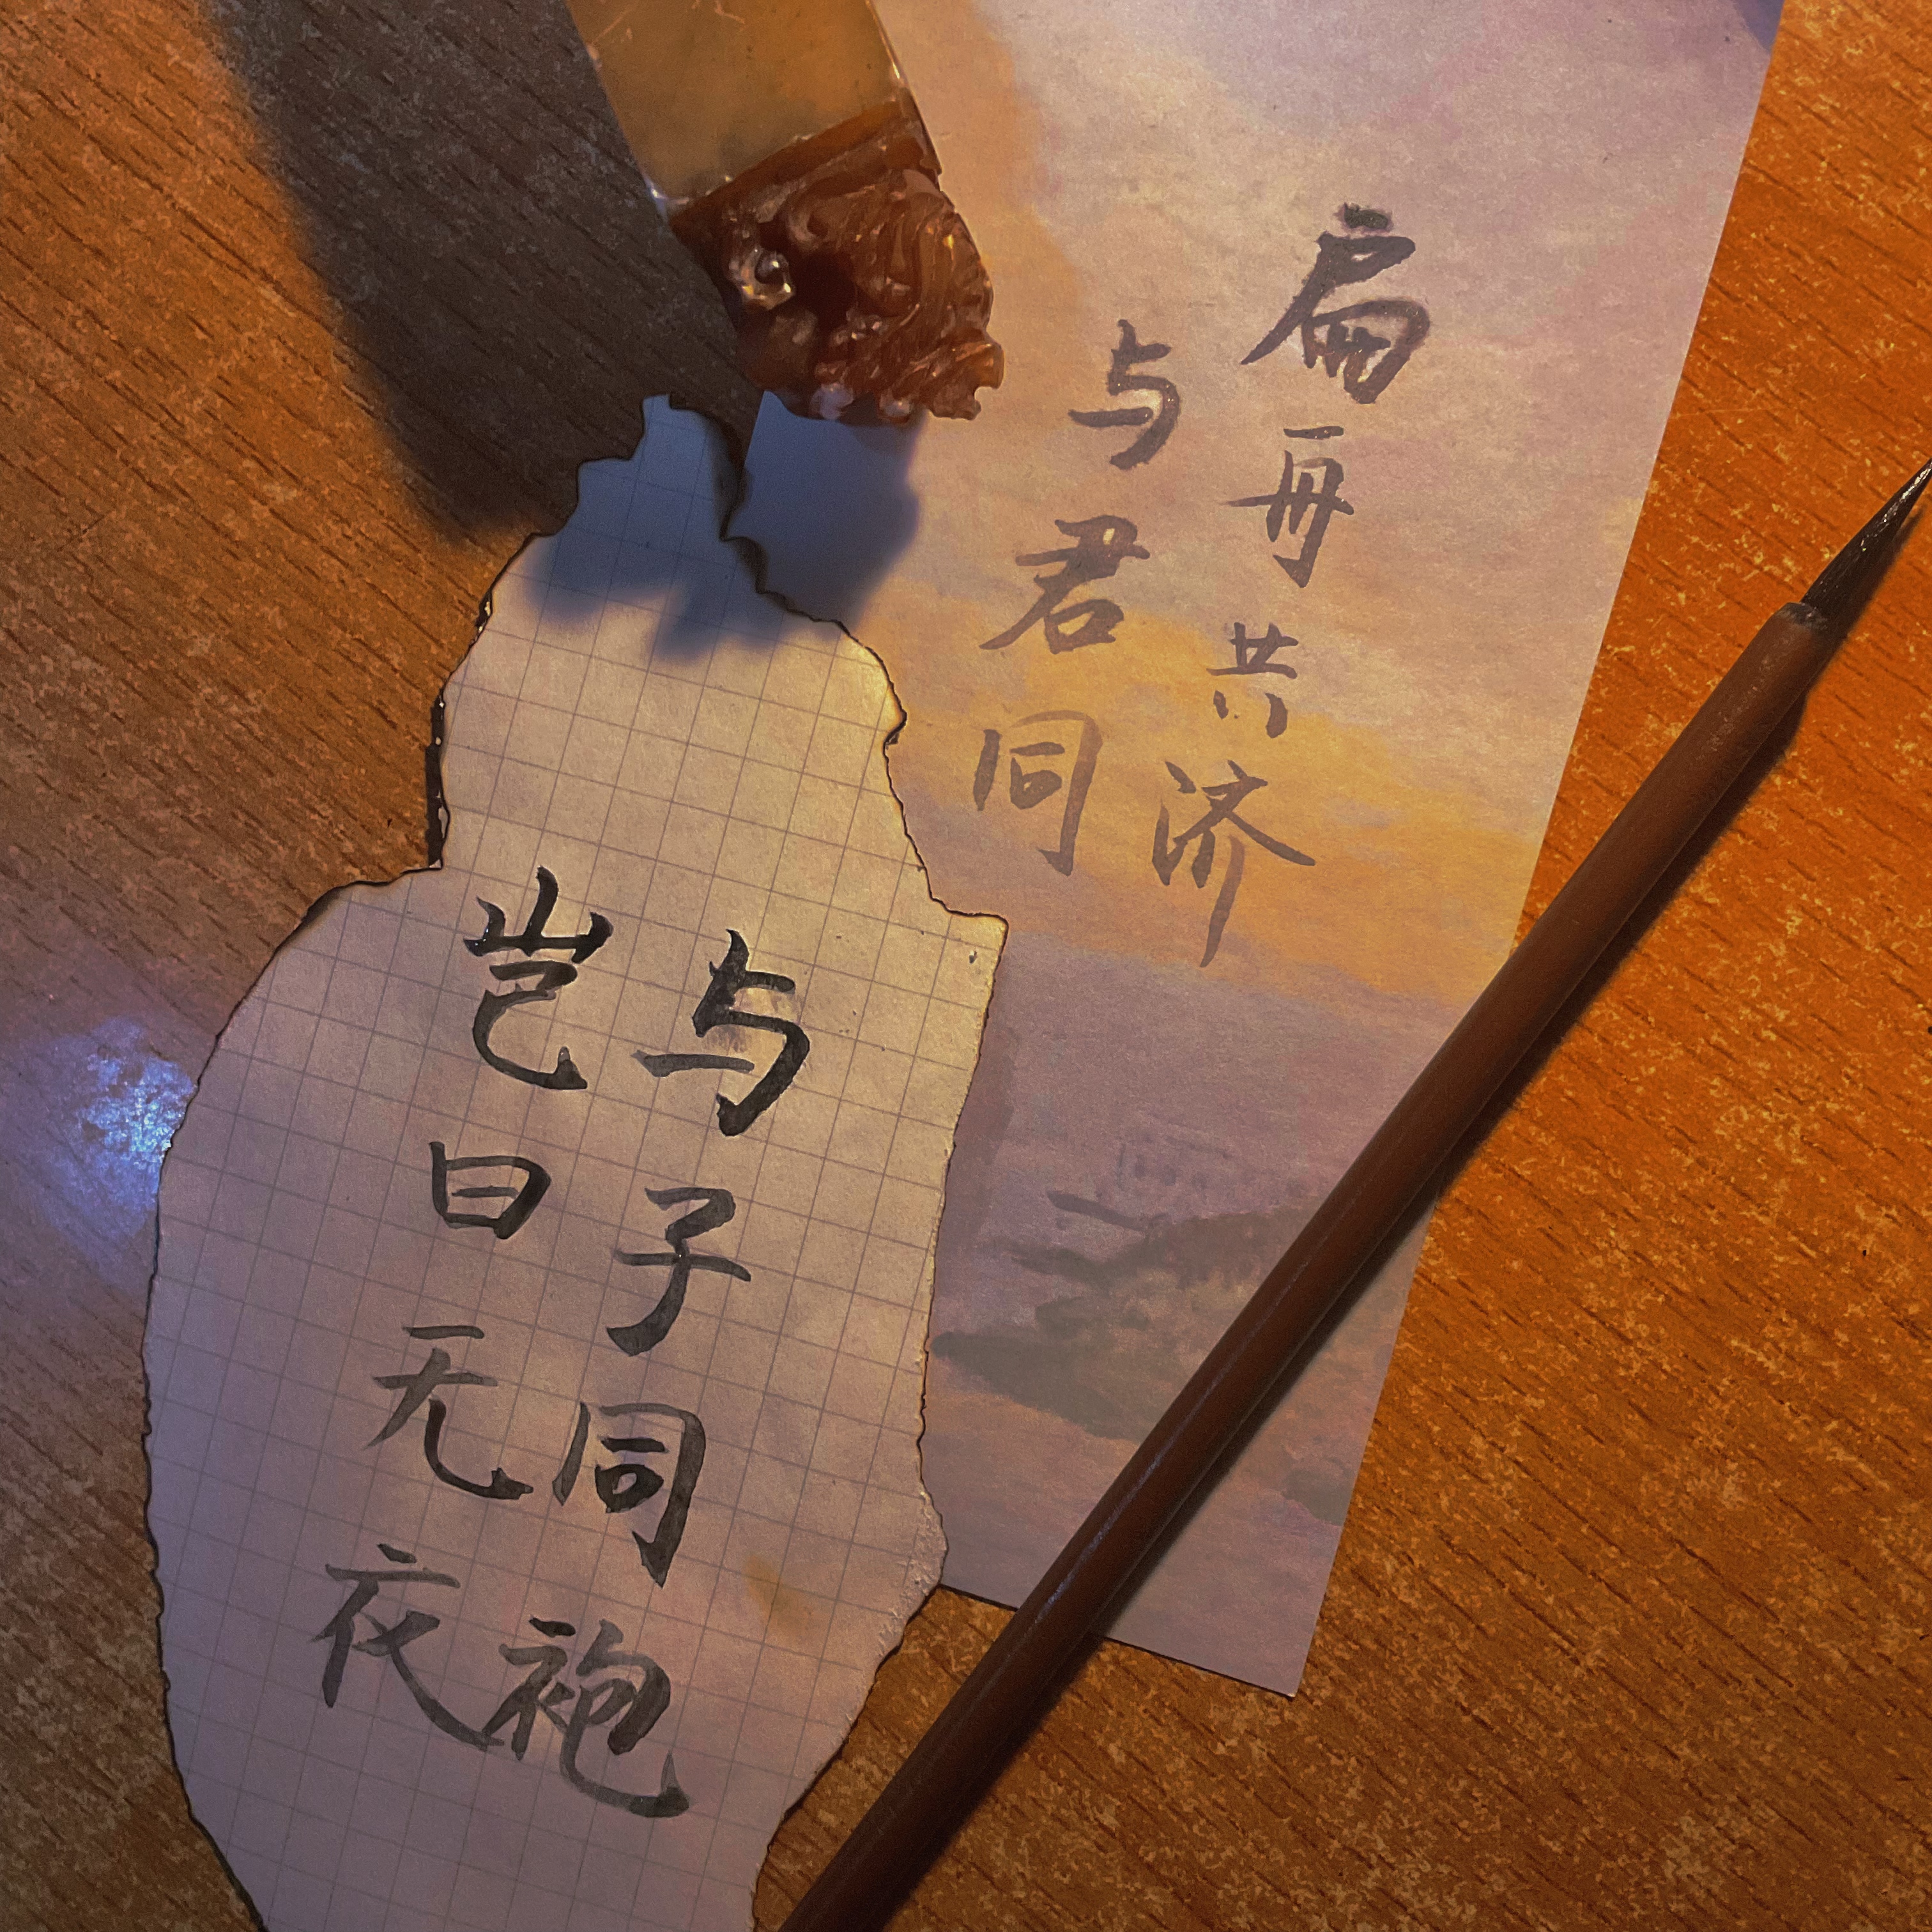 扁舟共济
与君同
与子同袍
岂曰无衣